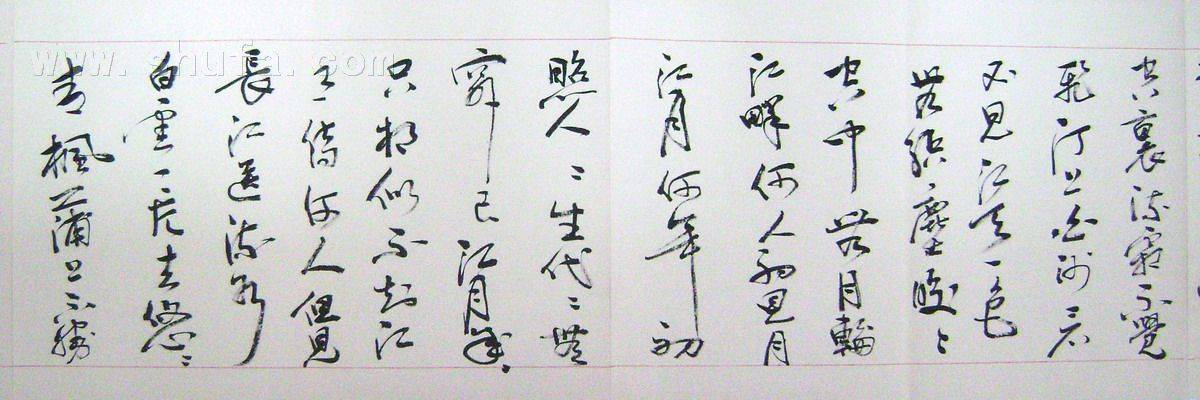 空裏流霜不覺
飛汀上白沙看
不見江天一色
無纖塵皎〻
空中孤月輪
江畔何人初見月
江月何年初
照人〻生代〻無
窮已江月年〻
只相似不知江
月待何人但見
長江送流水
白雲一片去悠〻
青楓浦上不勝
www.shufa.com